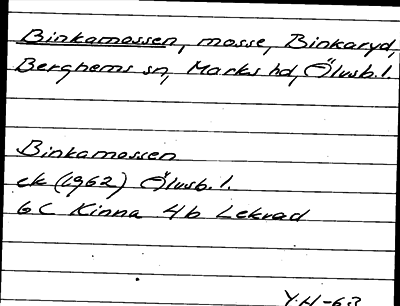 Binkamossen, mosse, Binkaryd,
Berghems sn, Marks hd, Älvsb. l.
Binkamossen
ek (1962) Älvsb. l.
6 C Kinna 4 b Lekvad
Y.H-63